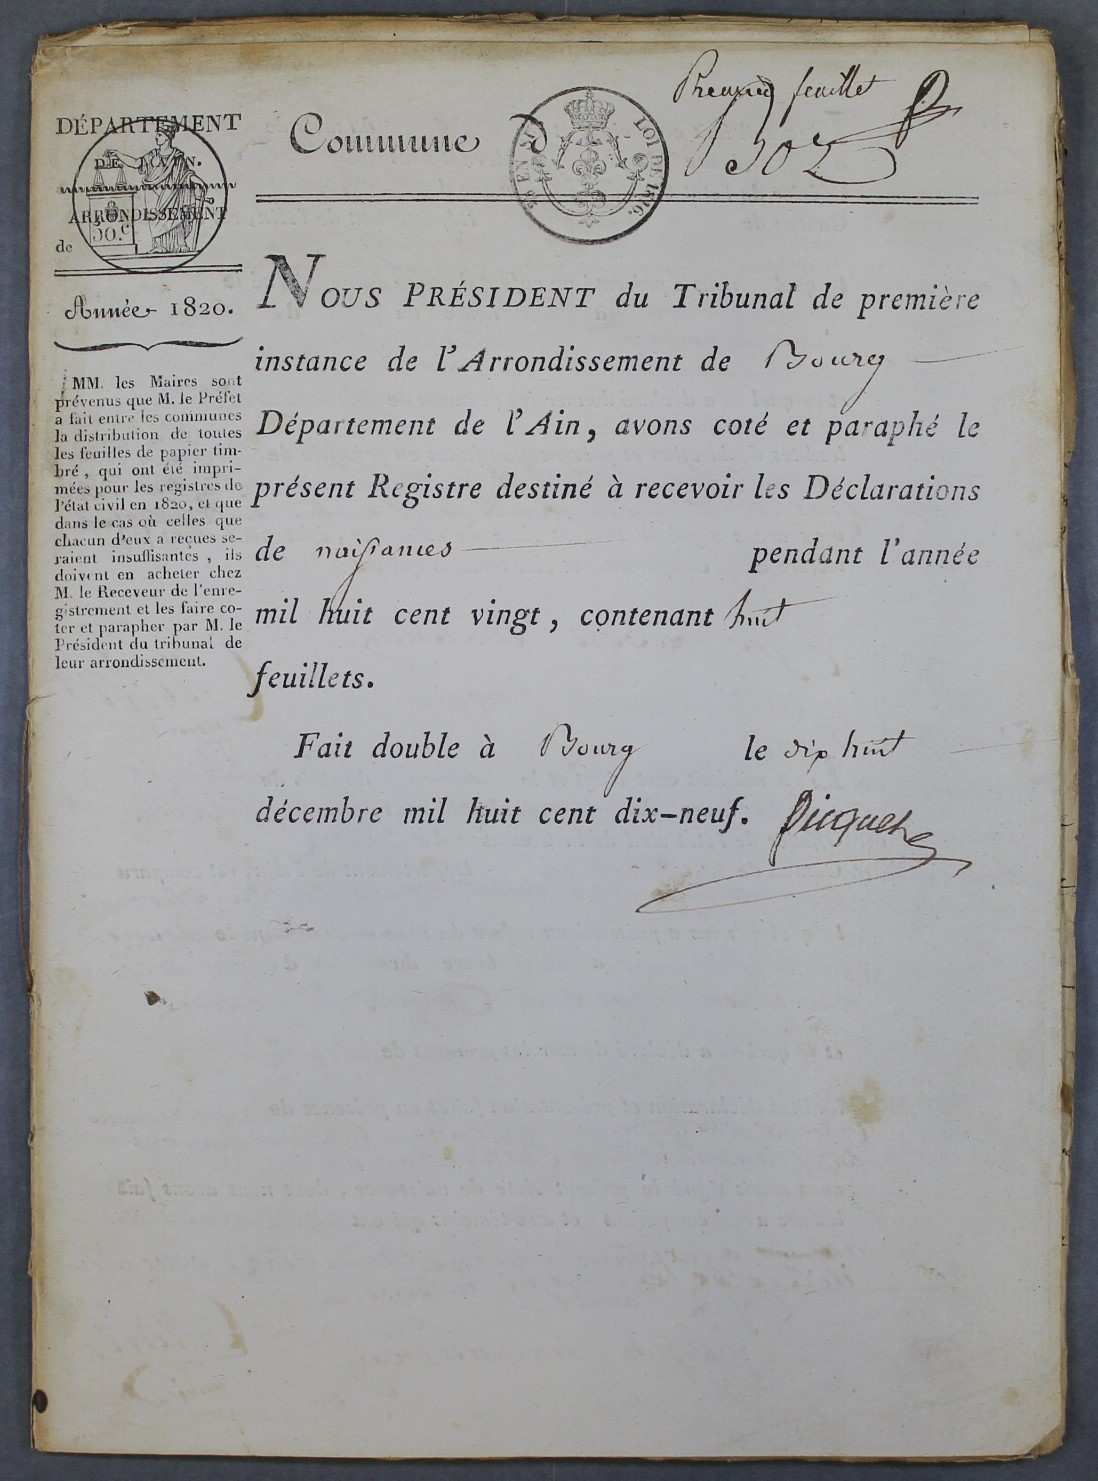 Premier feuillet
DÉPARTEMENT
DE L'AIN.
ARRONDISSEMENT
50.c
de
Commune d
EN SUS
LOI DE 1816.
Année 1820.
MM. les Maires sont
prévenus que M. le Préfet
a fait entre les communes
la distribution de toutes
les feuilles de papier tim-
bré, qui ont été impri-
mées pour les registres de
l'état civil en 1820, et que
dans le cas où celles que
chacun d'eux a reçues se-
raient insuffisantes, ils
doivent en acheter chez
M. le Receveur de l'enre-
gistrement et les faire co-
ter et parapher par M. le
Président du tribunal de
leur arrondissement.
NOUS PRÉSIDENT du Tribunal de première
instance de l'Arrondissement de Bourg
Département de l'Ain, avons coté et paraphé le
présent Registre destiné à recevoir les Déclarations
de naissances pendant l'année
mil huit cent vingt, contenant huit
feuillets.
Fait double à Bourg le dix huit
décembre mil huit cent dix-neuf. Picquet